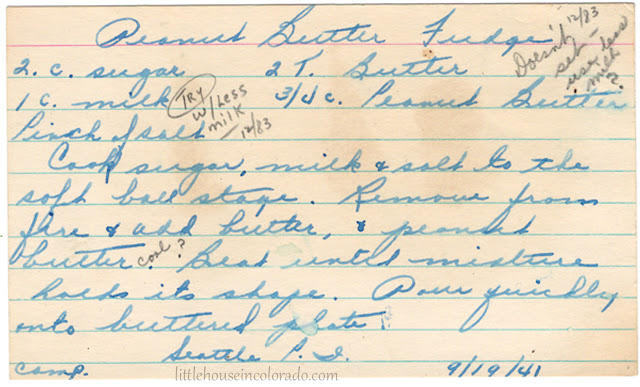 Peanut Butter Fudge
12/83
Doesn't set - use less milk?
2. c. sugar 2 T. Butter
1 c. milk 3/4 c. Peanut Butter
TRY w/Less milk - 12/83
Pinch of salt
Cook sugar, milk & salt to the
soft ball stage. Remove from
fire & add butter, & peanut
butter. cool? Beat until mixture
holds its shape. Pour quickly
onto buttered plate.
Seattle P. I.
comp. 9/19/41
littlehouseincolorado.com